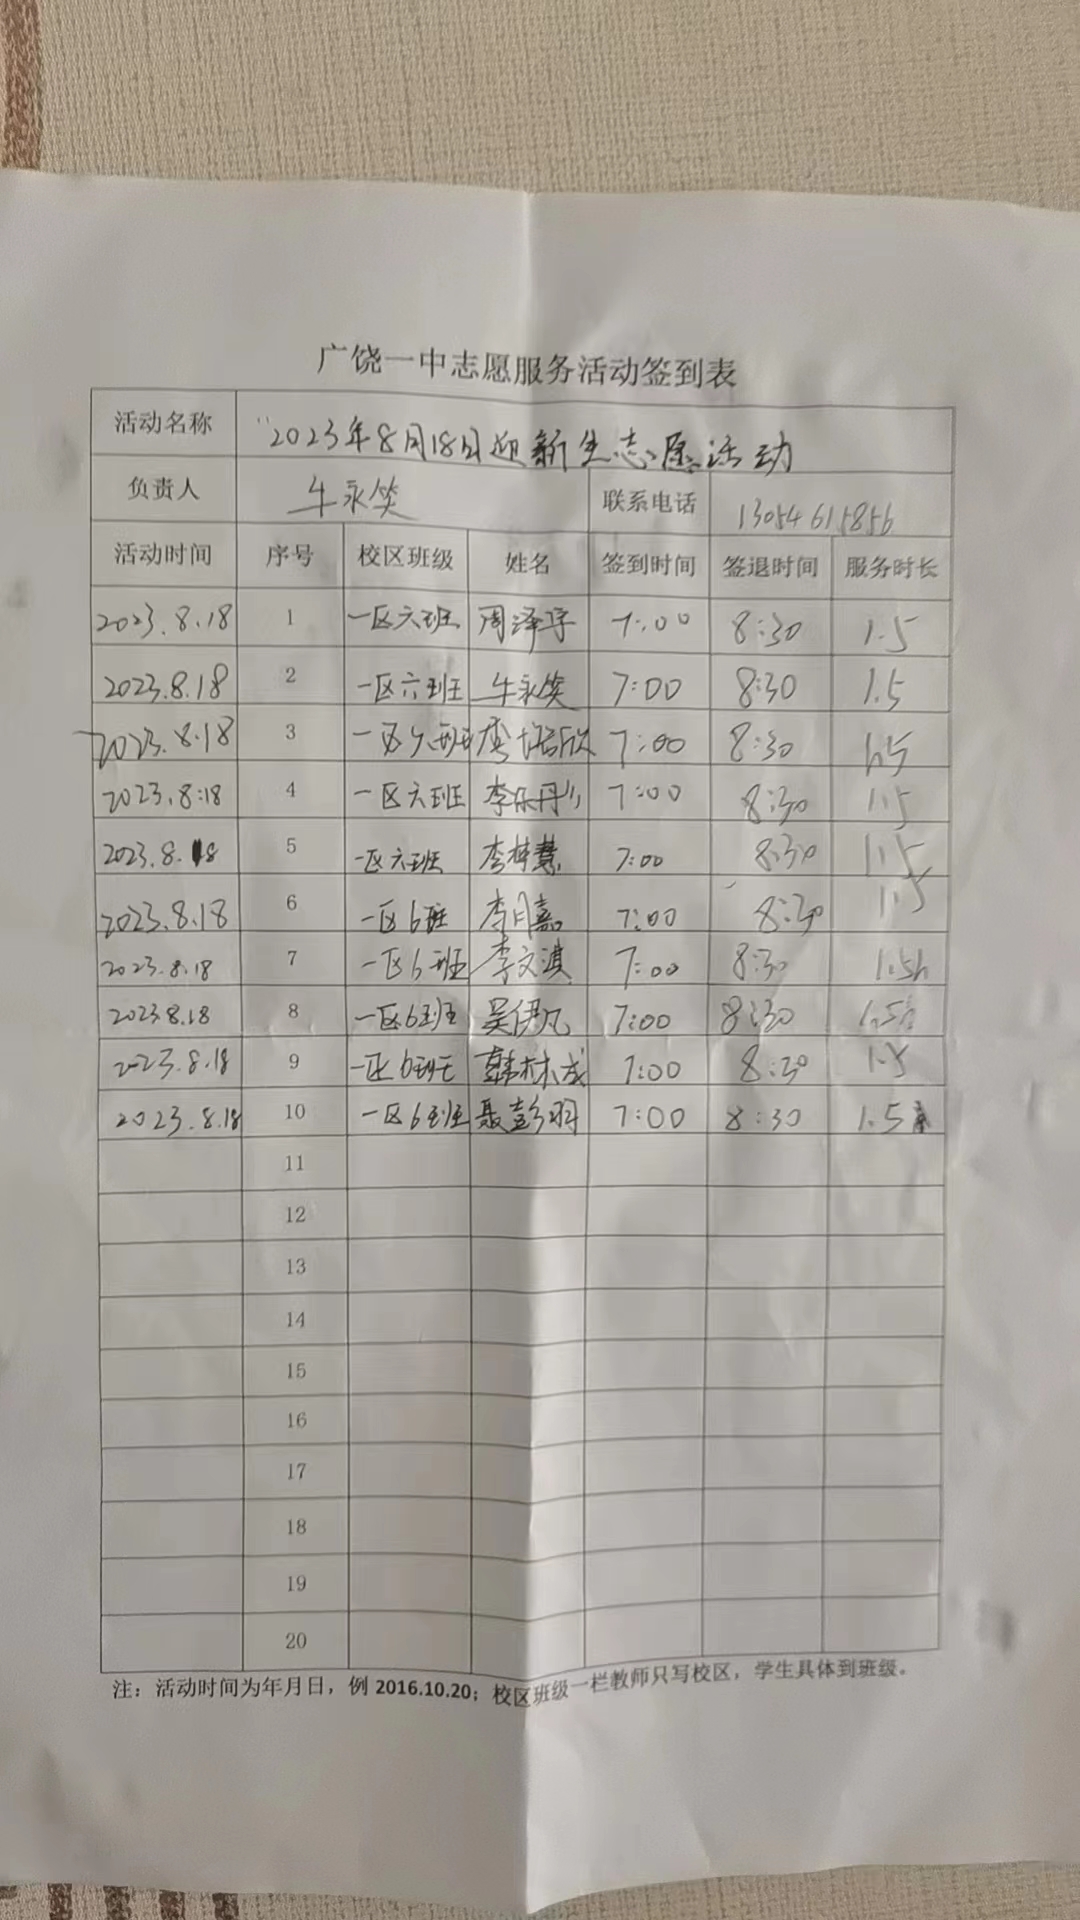 广饶一中志愿服务活动签到表
活动名称 "2023年8月18日迎新生志愿活动
负责人 牛永笑 联系电话 13054615856
活动时间 序号 校区班级 姓名 签到时间 签退时间 服务时长
2023.8.18 1 一区六班 周泽宇 7:00 8:30 1.5
2023.8.18 2 一区六班 牛永笑 7:00 8:30 1.5
2023.8.18 3 一区六班 李 欣 7:00 8:30 1.5
2023.8.18 4 一区六班 李乐丹 7:00 8:30 1.5
2023.8.18 5 一区六班 李梓慧 7:00 8:30 1.5
2023.8.18 6 一区6班 李月嘉 7:00 8:30 1.5
2023.8.18 7 一区6班 李文淇 7:00 8:30 1.5h
2023.8.18 8 一区6班 吴伊凡 7:00 8:30 1.5h
2023.8.18 9 一区6班 韩林成 7:00 8:30 1.5
2023.8.18 10 一区6班 聂彭羽 7:00 8:30 1.5
11
12
13
14
15
16
17
18
19
20
注：活动时间为年月日，例 2016.10.20；校区班级一栏教师只写校区，学生具体到班级。